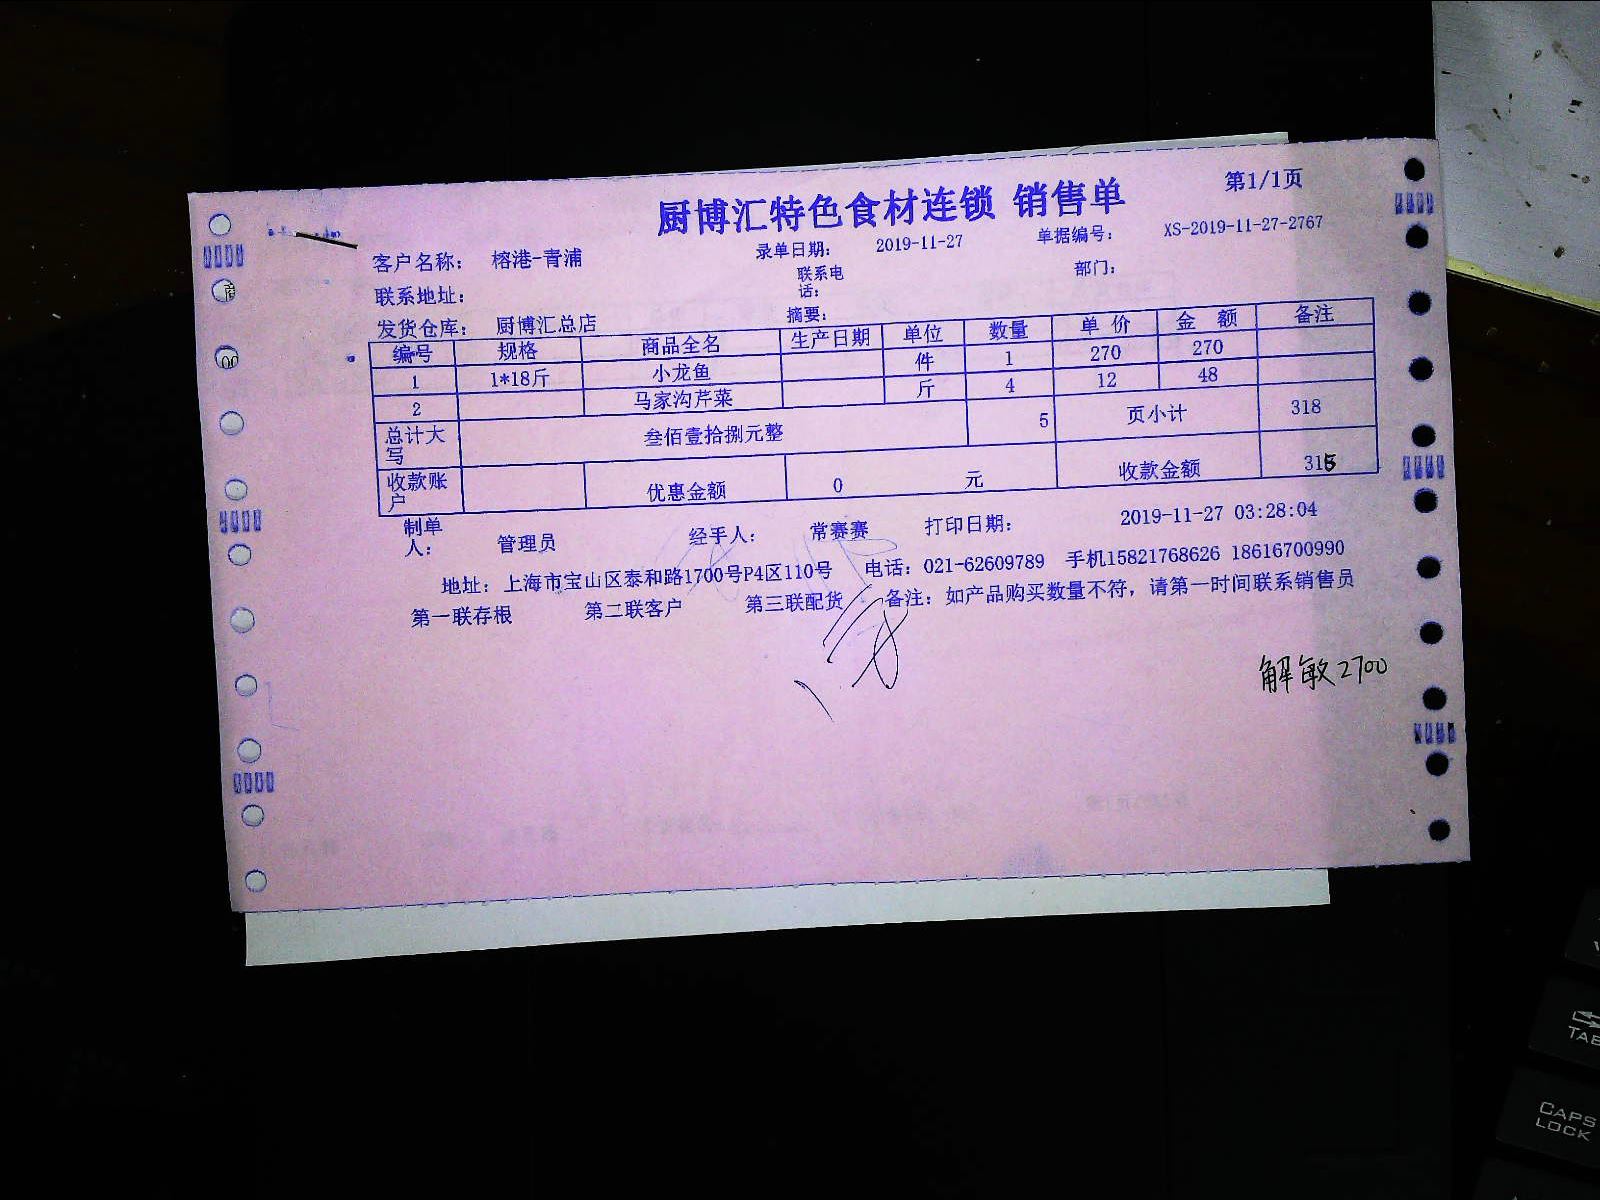 第1/1页
厨博汇特色食材连锁 销售单
客户名称： 榕港-青浦 录单日期： 2019-11-27 单据编号： XS-2019-11-27-2767
联系地址： 联系电话： 部门：
发货仓库： 厨博汇总店 摘要：
编号 规格 商品全名 生产日期 单位 数量 单 价 金 额 备注
1 1*18斤 小龙鱼 件 1 270 270
2 马家沟芹菜 斤 4 12 48
总计大写 叁佰壹拾捌元整 5 页小计 318
收款账户 优惠金额 0 元 收款金额 318
制单人： 管理员 经手人： 常赛赛 打印日期： 2019-11-27 03:28:04
地址：上海市宝山区泰和路1700号P4区110号 电话：021-62609789 手机15821768626 18616700990
第一联存根 第二联客户 第三联配货 备注：如产品购买数量不符，请第一时间联系销售员
解敏2700
TAB
CAPS
LOCK